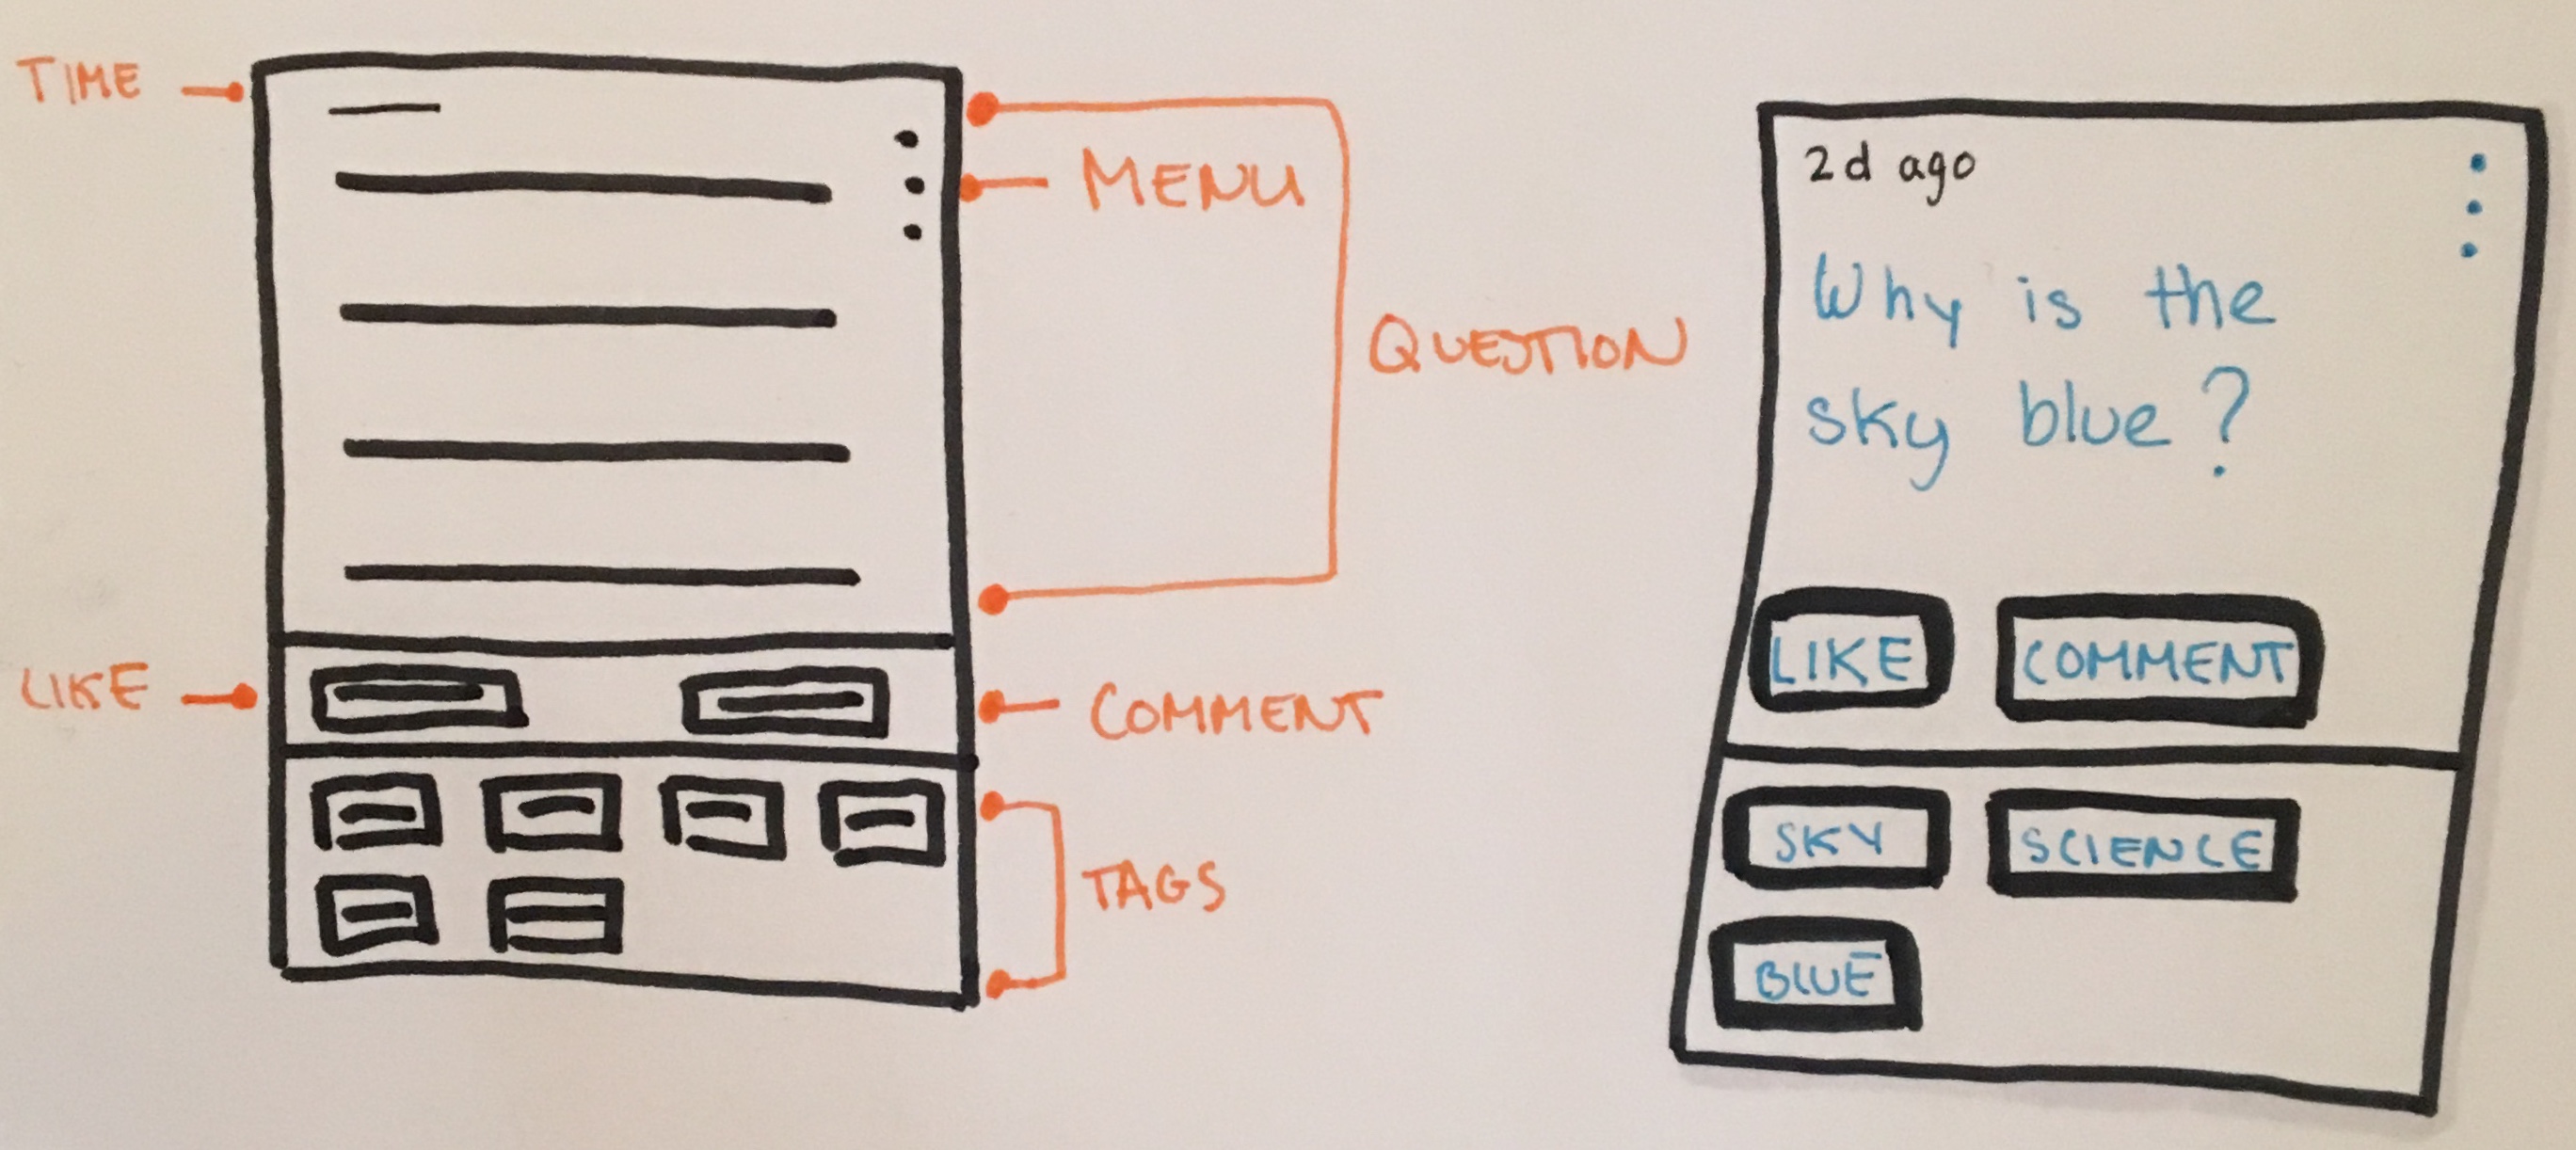 TIME
MENU
QUESTION
LIKE
COMMENT
TAGS
2d ago
Why is the
sky blue?
LIKE COMMENT
SKY SCIENCE
BLUE